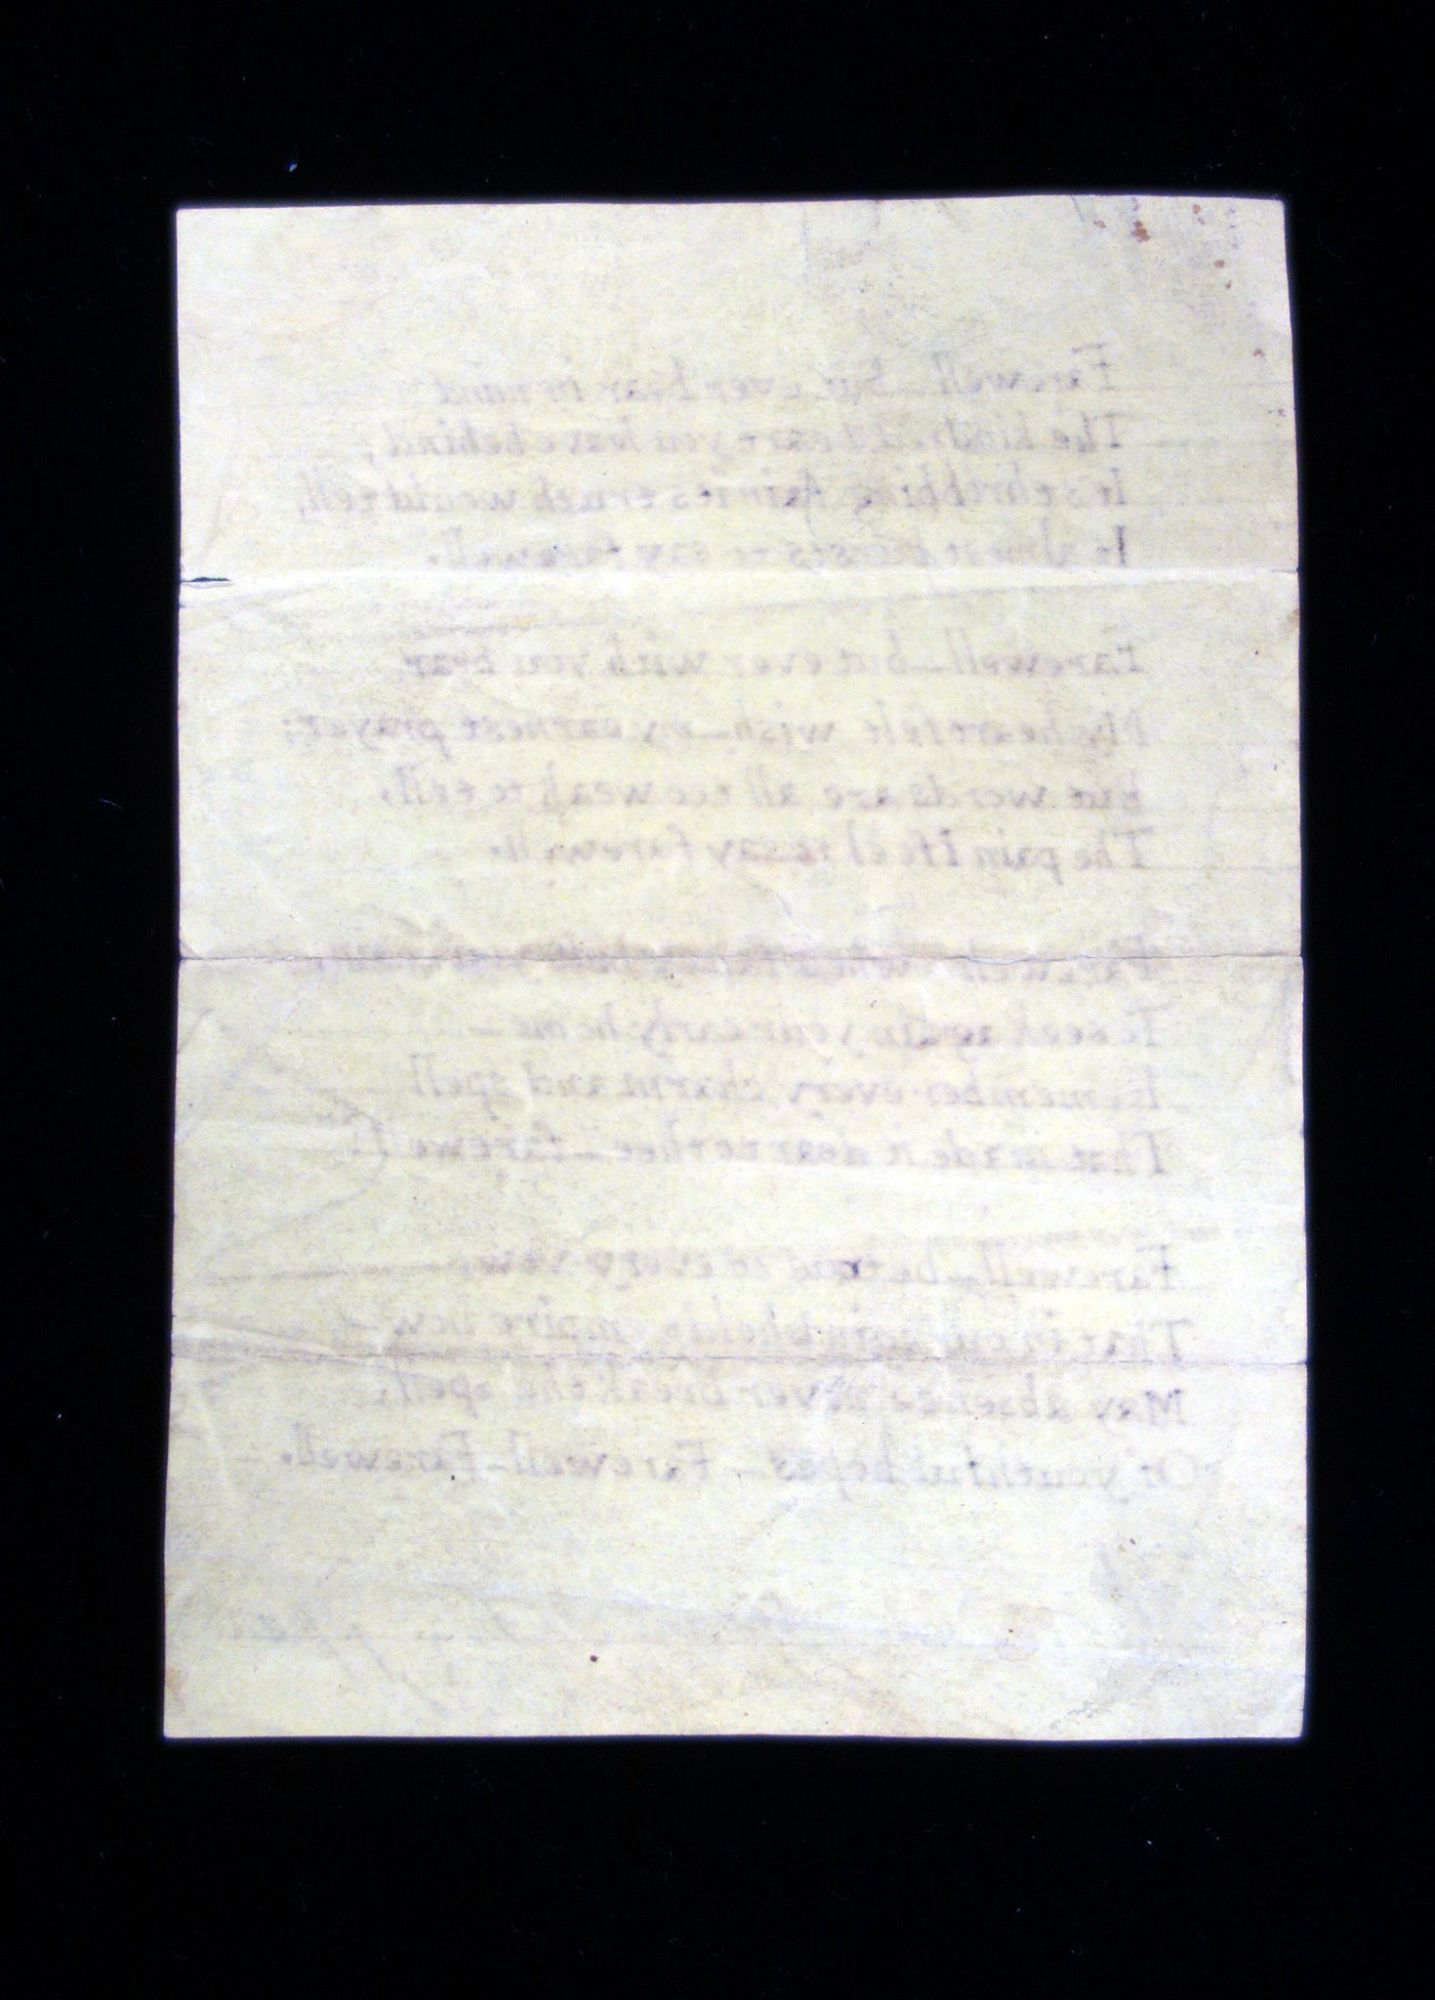 Farewell—but ever bear in mind
The kindred heart you leave behind;
Its throbbing faintest truth would tell,
It almost bursts to say farewell.
Farewell—but ever with you bear
My heartfelt wish—my earnest prayer;
But words are all too weak to tell,
The pain I feel to say farewell.
Farewell
To seek again your early home—
Remember every charm and spell
That made it dear to thee—farewell.
Farewell—be true to every vow,
That in your holds empire now
May absence never break the spell,
Of youthful hopes—Farewell—Farewell.